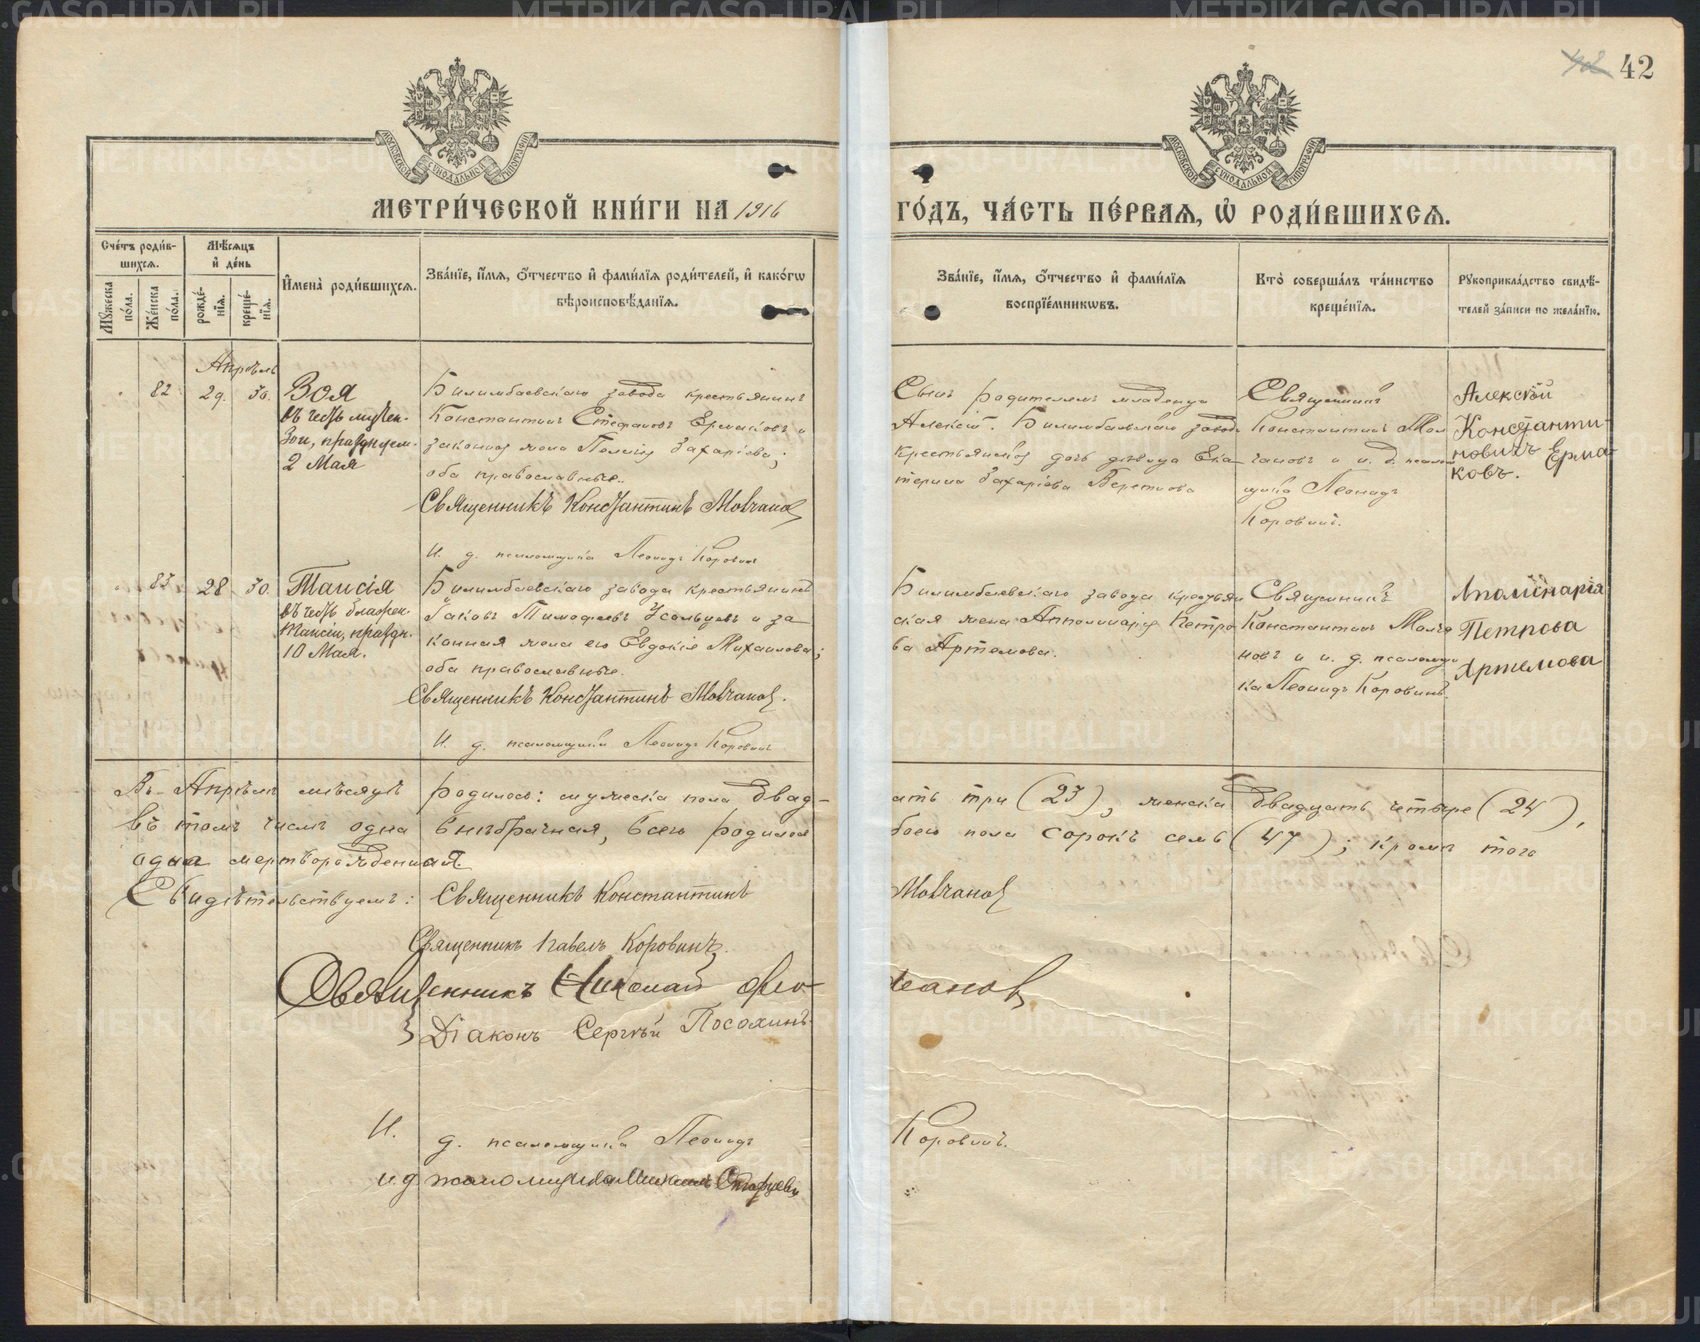 42
МЕТРИ́ЧЕСКОЙ КНИ́ГИ НА 1916
ГО́ДЪ, ЧА́СТЬ ПЕ́РВАЯ, Ѡ҆ РОДИ́ВШИХСЯ.
Сче́тъ роди́в-
шихся.
Мѣ́сяцъ
и҆ де́нь
Мꙋ́жеска
по́ла.
Же́нска
по́ла.
рожде́-
нїѧ.
креще́-
нїѧ.
И҆мена̀ роди́вшихсѧ.
Зва́нїе, и҆́мѧ, ѻ҆́тчество и҆ фами́лїѧ роди́телей, и҆ како́гѡ
вѣроисповѣ́данїѧ.
Зва́нїе, и҆́мѧ, ѻ҆́тчество и҆ фами́лїѧ
воспрїе́мникѡвъ.
Кто̀ соверша́лъ та́инство
креще́нїѧ.
Рꙋкоприкла́дство свидѣ́-
телей за́писи по жела́нїю.
Апрѣль
82 29. 30.
Зоя
въ честь мучен.
Зои, празднуем.
2 Мая
Билимбаевскаго завода крестьянинъ
Константинъ Стефановъ Ермаковъ и
законная жена Пелагія Захаріева;
оба православные.
Священникъ Константинъ Мовчанов
И. д. псаломщика Леонидъ Коровинъ
Сынъ родителей младенца
Алексій. Билимбаевскаго завода
крестьянская дочь дѣвица Ека
терина Захаріева Веретнова
Священникъ
Константинъ Мов
чановъ и и. д. псалом
щика Леонидъ
Коровинъ.
Алексѣй
Константи-
новичъ Ерма-
ковъ.
83 28 30.
Таисія
въ честь блажен.
Таисіи, праздн.
10 Мая.
Билимбаевскаго завода крестьянинъ
Іаковъ Тимофеевъ Усольцевъ и за
конная жена его Евдокія Михаилова;
оба православные.
Священникъ Константинъ Мовчанов.
И. д. псаломщика Леонидъ Коровинъ
Билимбаевскаго завода крестьян
ская жена Апполинарія Петро
ва Артемова.
Священникъ
Константинъ Мовча
новъ и и. д. псаломщи
ка Леонидъ Коровинъ.
Аполинария
Петрова
Артемова
Въ Апрѣлѣ мѣсяцѣ родилось: мужеска пола двад-
цать три (23), женска двадцать четыре (24),
въ томъ числѣ одна внѣбрачная, всего родилося
обоего пола сорокъ семь (47); кромѣ того
одна мертворожденная.
Свидѣтельствуемъ: Священникъ Константинъ
Мовчанов
Священникъ Павелъ Коровинъ.
Священникъ Николай
Діаконъ Сергѣй Посохинъ.
И. д. псаломщика Леонидъ
Коровинъ.
и.д псаломщика